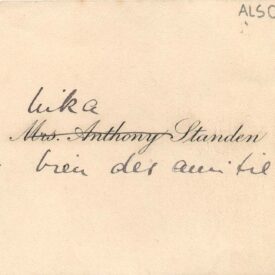 ALSO
Nika
Mrs. Anthony Standen
bien des amitié